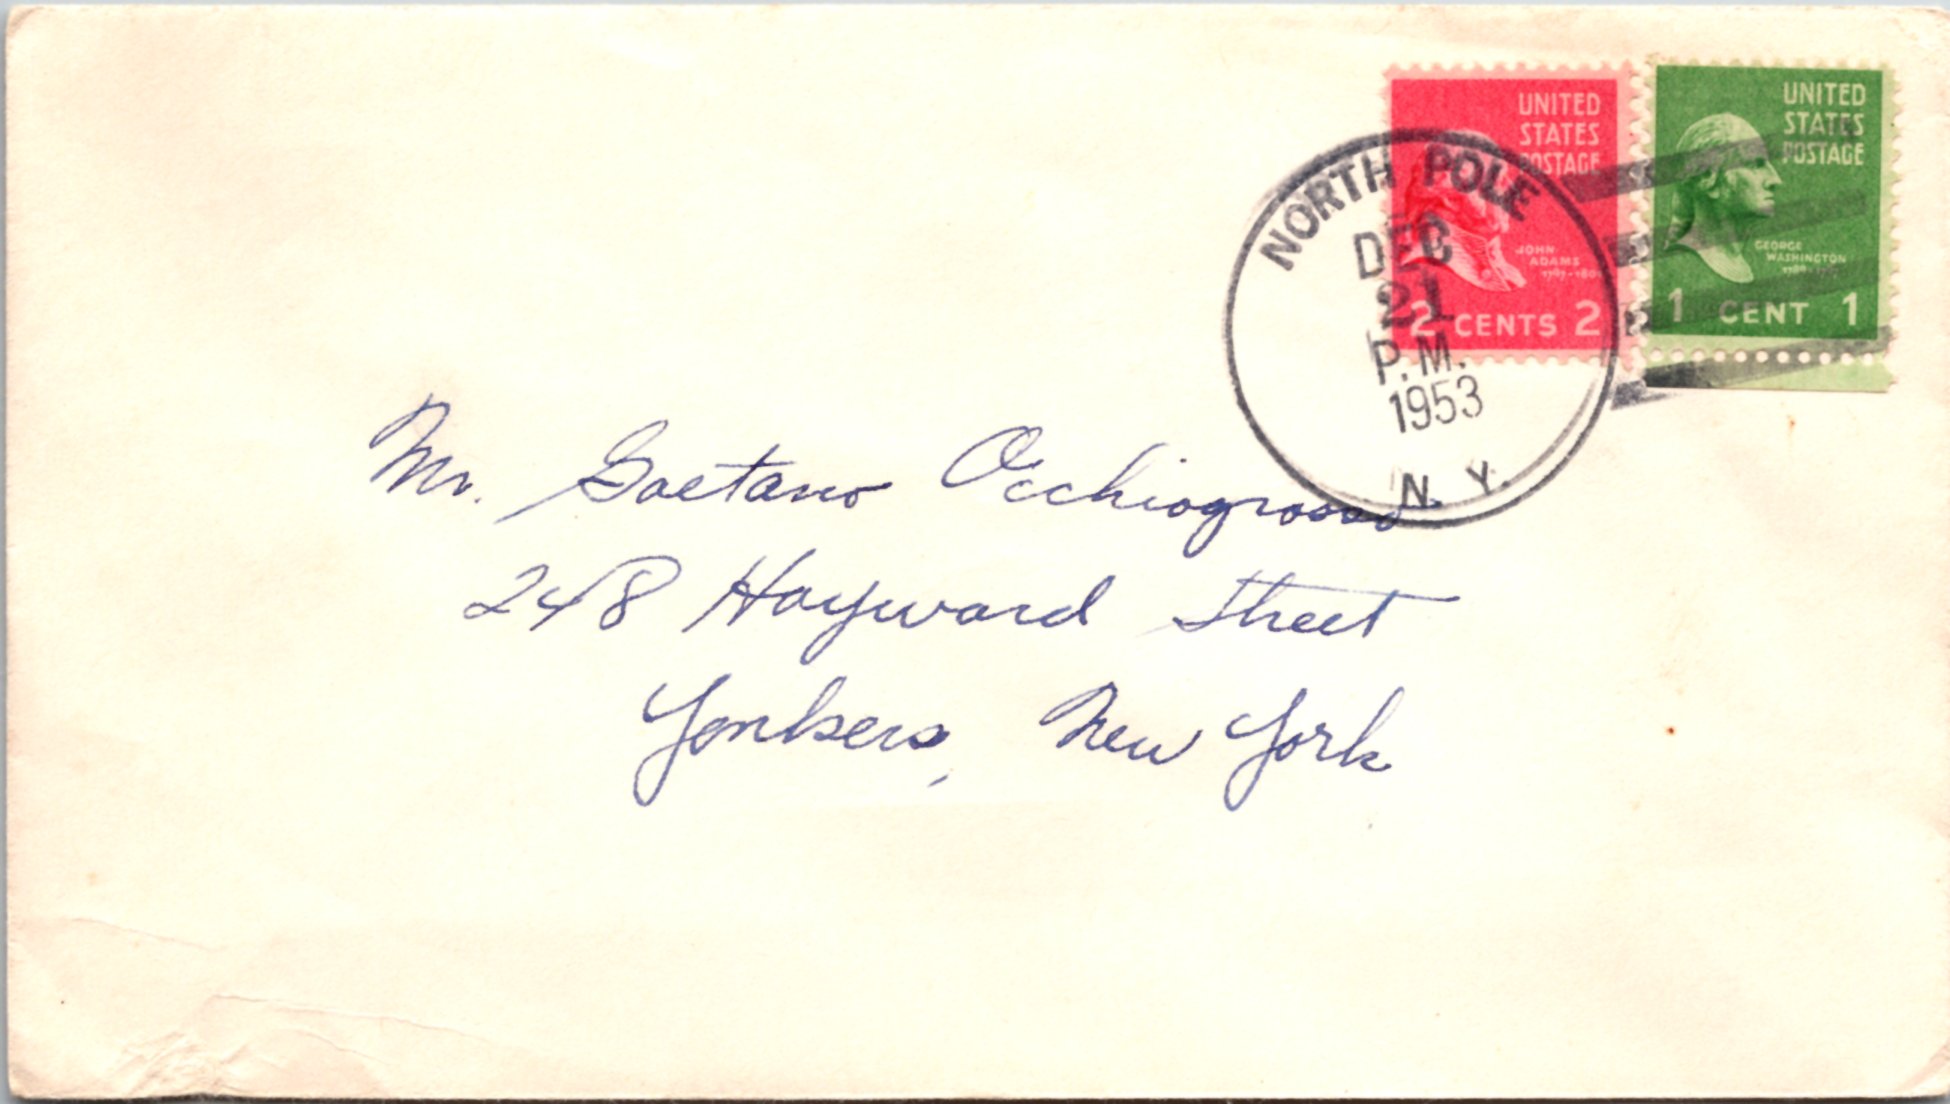 UNITED
STATES
POSTAGE
JOHN
ADAMS
2 CENTS 2
UNITED
STATES
POSTAGE
GEORGE
WASHINGTON
1 CENT 1
NORTH POLE
DEC
21
P.M.
1953
N. Y.
Mr. Gaetano Occhiogrosso
248 Hayward Street
Yonkers, New York